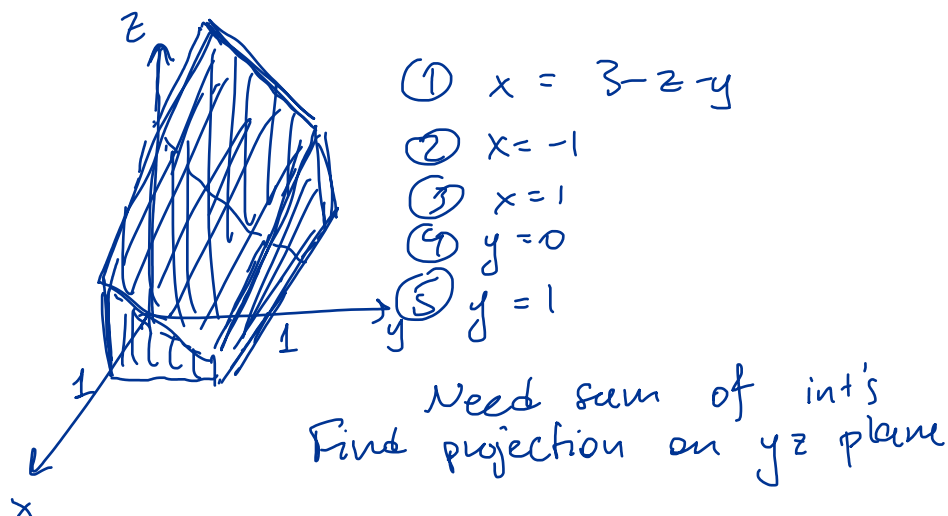 z
① x = 3-z-y
② x=-1
③ x=1
④ y=0
⑤ y=1
1
y
1
x
Need sum of int's
Find projection on yz plane